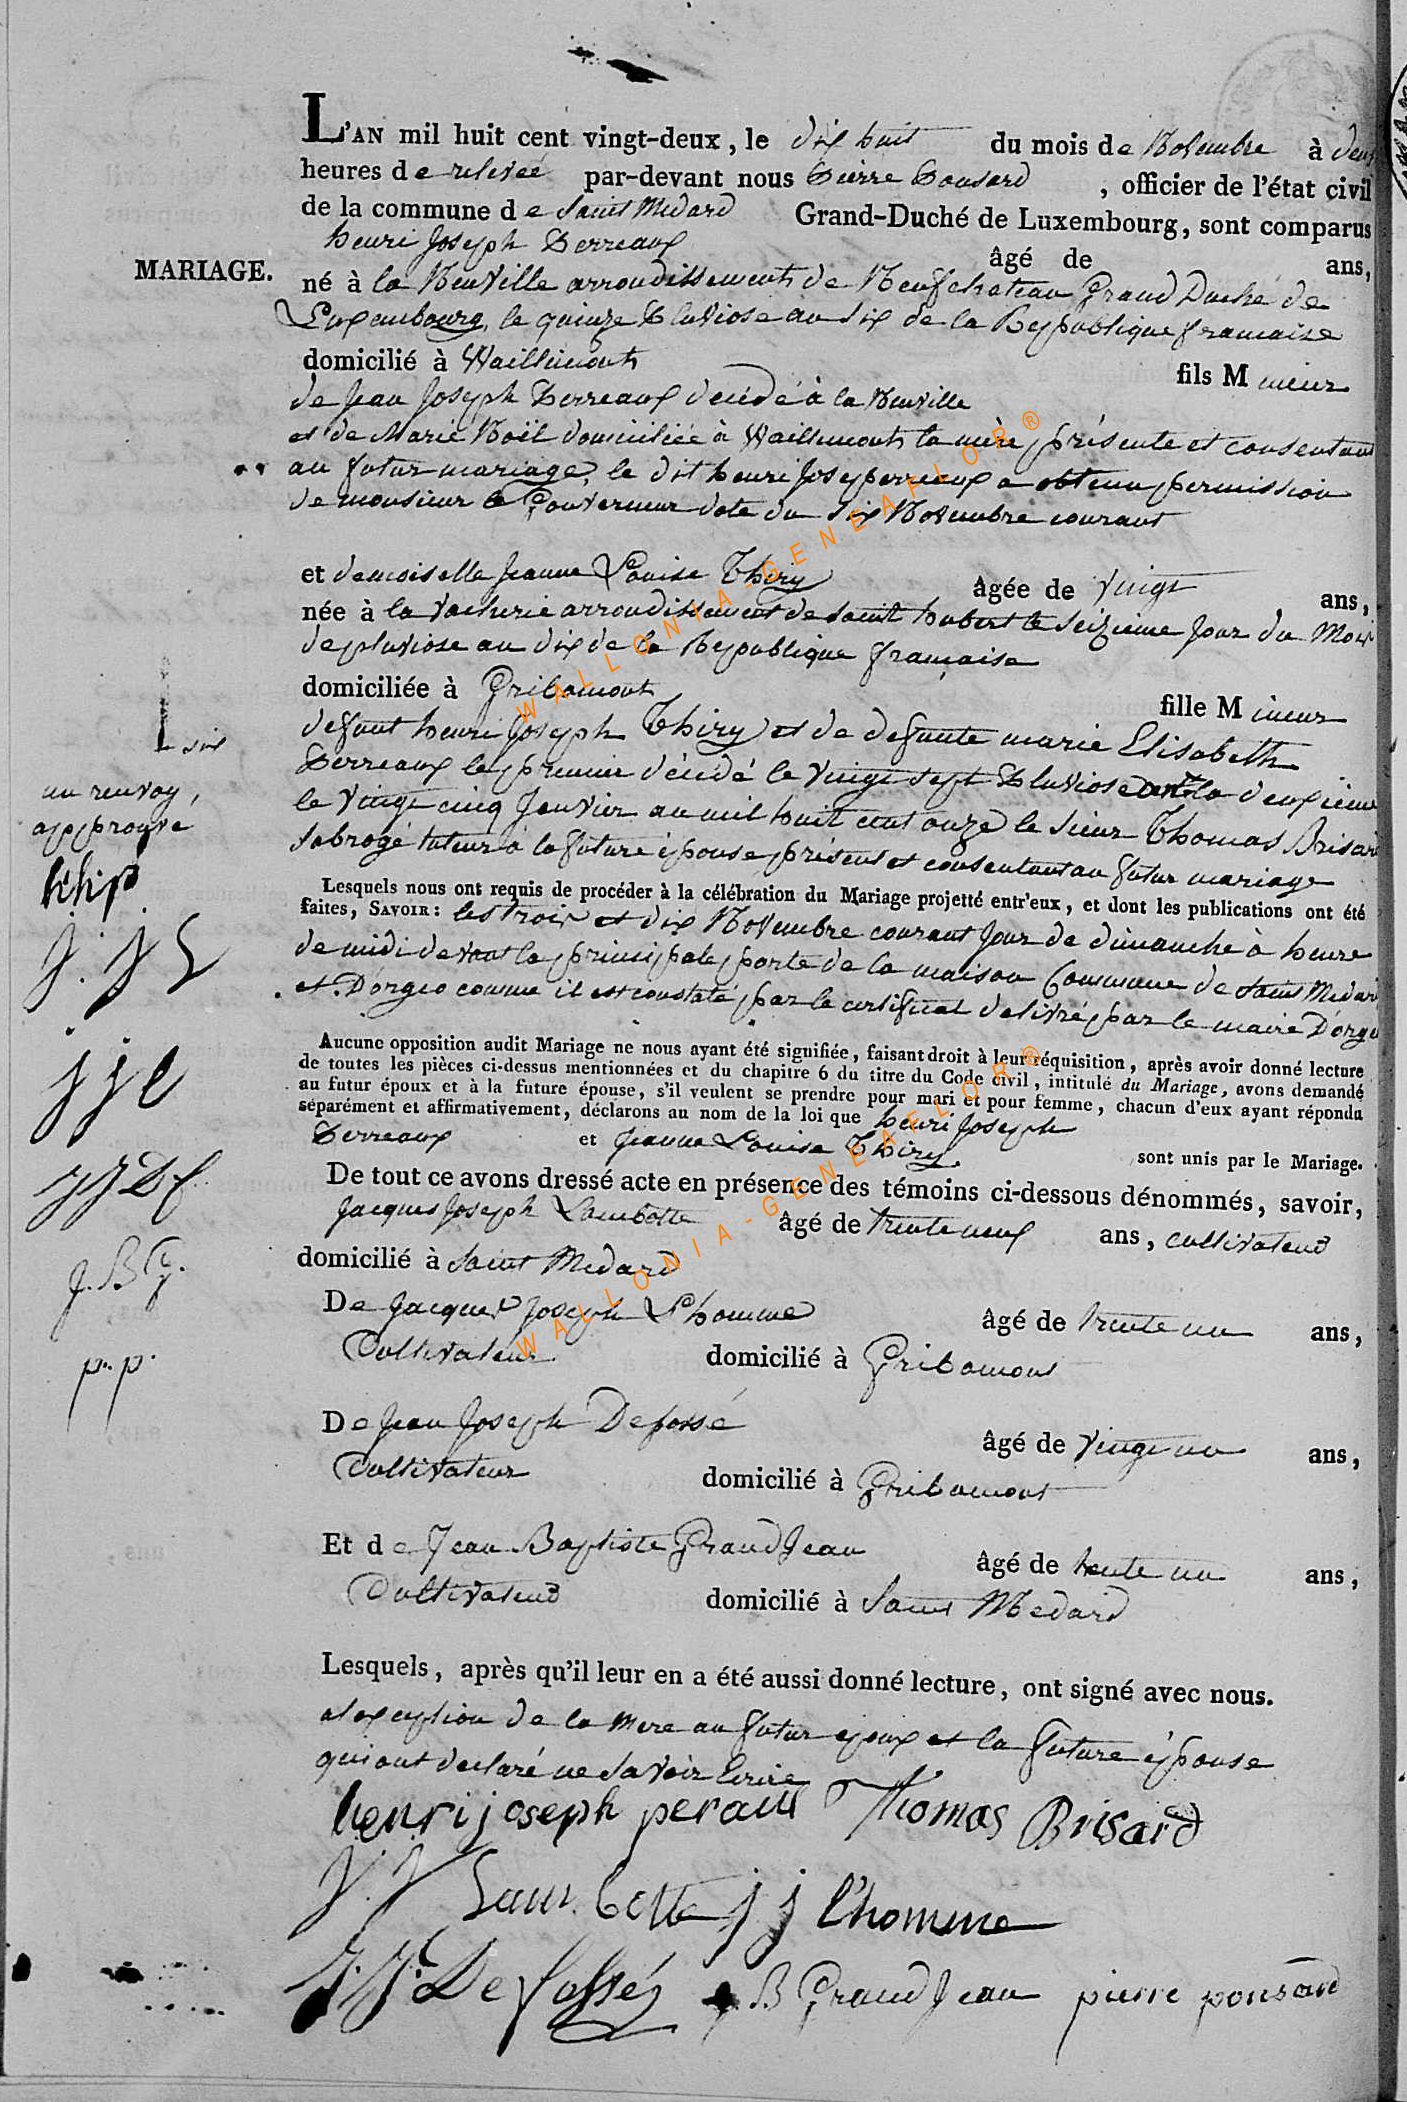 L'AN mil huit cent vingt-deux, le dix huit du mois de Novembre à deux
heures de relevée par-devant nous Pierre Ponsard, officier de l'état civil
de la commune de Saint Médard Grand-Duché de Luxembourg, sont comparus
henri Joseph Perreaux âgé de ans,
MARIAGE.
né à la Neuville arrondissement de Neufchateau Grand Duché de
Luxembourg, le quinze Pluviose an six de la Republique francaise
domicilié à Waillimont fils Mineur
de Jean Joseph Perreaux décédé à la Neuville
et de Marie Noël domiciliée à Waillimont la mère présente et consentant
au futur mariage, le dit henri Josep perreaux a obtenu permission
de monsieur le Gouverneur date du six Novembre courant
et demoiselle Jeanne Louise Thiry Agée de vingt ans,
née à la vacherie arrondissement de saint hubert le seizieme jour du Mois
de pluviose an dix de la Republique française
domiciliée à Gribomont fille Mineur
defunt henri Joseph Thiry et de defunte marie Elisabeth
Perreaux le premier décédé le vingt sept Pluviose la deuxième
le vingt cinq Janvier an mil huit cent onze le sieur Thomas Brisard
subrogé tuteur à la future épouse présent et consentant au futur mariage
un renvoy,
approuvé
hjp
J. J L
j j l
JJ Df
J. B G.
p. p.
Lesquels nous ont requis de procéder à la célébration du Mariage projetté entr'eux, et dont les publications ont été
faites, SAVOIR: les trois et dix Novembre courant jour de dimanche à heure
de midi devant la principale porte de la maison Commune de saint Medard
et D'orgeo comme il est constaté par le certificat delivré par le maire D'orgeo
Aucune opposition audit Mariage ne nous ayant été signifiée, faisant droit à leur réquisition, après avoir donné lecture
de toutes les pièces ci-dessus mentionnées et du chapitre 6 du titre du Code civil, intitulé du Mariage, avons demandé
au futur époux et à la future épouse, s'il veulent se prendre pour mari et pour femme, chacun d'eux ayant répondu
séparément et affirmativement, déclarons au nom de la loi que henri Joseph
Perreaux et Jeanne Louise Thiry sont unis par le Mariage.
De tout ce avons dressé acte en présence des témoins ci-dessous dénommés, savoir,
Jacques Joseph Lambotte âgé de trente neuf ans, cultivateur
domicilié à Saint Medard
De Jacques Joseph L'homme âgé de trente un ans,
Cultivateur domicilié à Gribomont
De Jean Joseph Defossé âgé de vingt un ans,
Cultivateur domicilié à Gribomont
Et de Jean Baptiste GrandJean âgé de trente un ans,
Cultivateur domicilié à Saint Medard
Lesquels, après qu'il leur en a été aussi donné lecture, ont signé avec nous.
a l'exception de la mere au futur epoux et la future épouse
qui ont declaré ne savoir Ecrire
henri joseph peraux Thomas Brisard
J. J Lambotte j j l'homme
J. J. Defosséz J. B GrandJean pierre ponsard
WALLONIA-GENEAFLOR®
WALLONIA-GENEAFLOR®